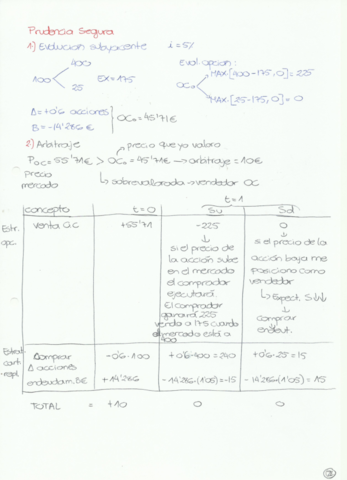 Prudencia Segura
1) Evolución subyacente i=5%
Eval. opción:
400
100
25
Ex=175
OC₀
MAX[400-175,0]=225
MAX[25-175,0]=0
Δ=+0'6 acciones
B=-14'286€
OC₀=45'71€
2) Arbitraje
precio que yo valoro
POC=55'71€ > OC₀=45'71€ → arbitraje=10€
precio
mercado
↳ sobrevalorada → vendedor OC
t=1
concepto t=0 Su Sd
Estr.
opc.
venta OC +55'71 -225 0
↓
si el precio de
la acción sube
en el mercado
el comprador
ejecutará.
El comprador
ganará 225
venda a 175 cuando
el mercado está a
400
↓
si el precio de la
acción baja me
posiciono como
vendedor
↳ Expect. S↓
↓
comprar
y
endeut.
Estrat.
cart.
repl.
Δ comprar -0'6·100 +0'6·400=240 +0'6·25=15
Δ acciones
endeudam. B€ +14'286 -14'286·(1'05)=-15 -14'286·(1'05)=15
TOTAL = +10 0 0